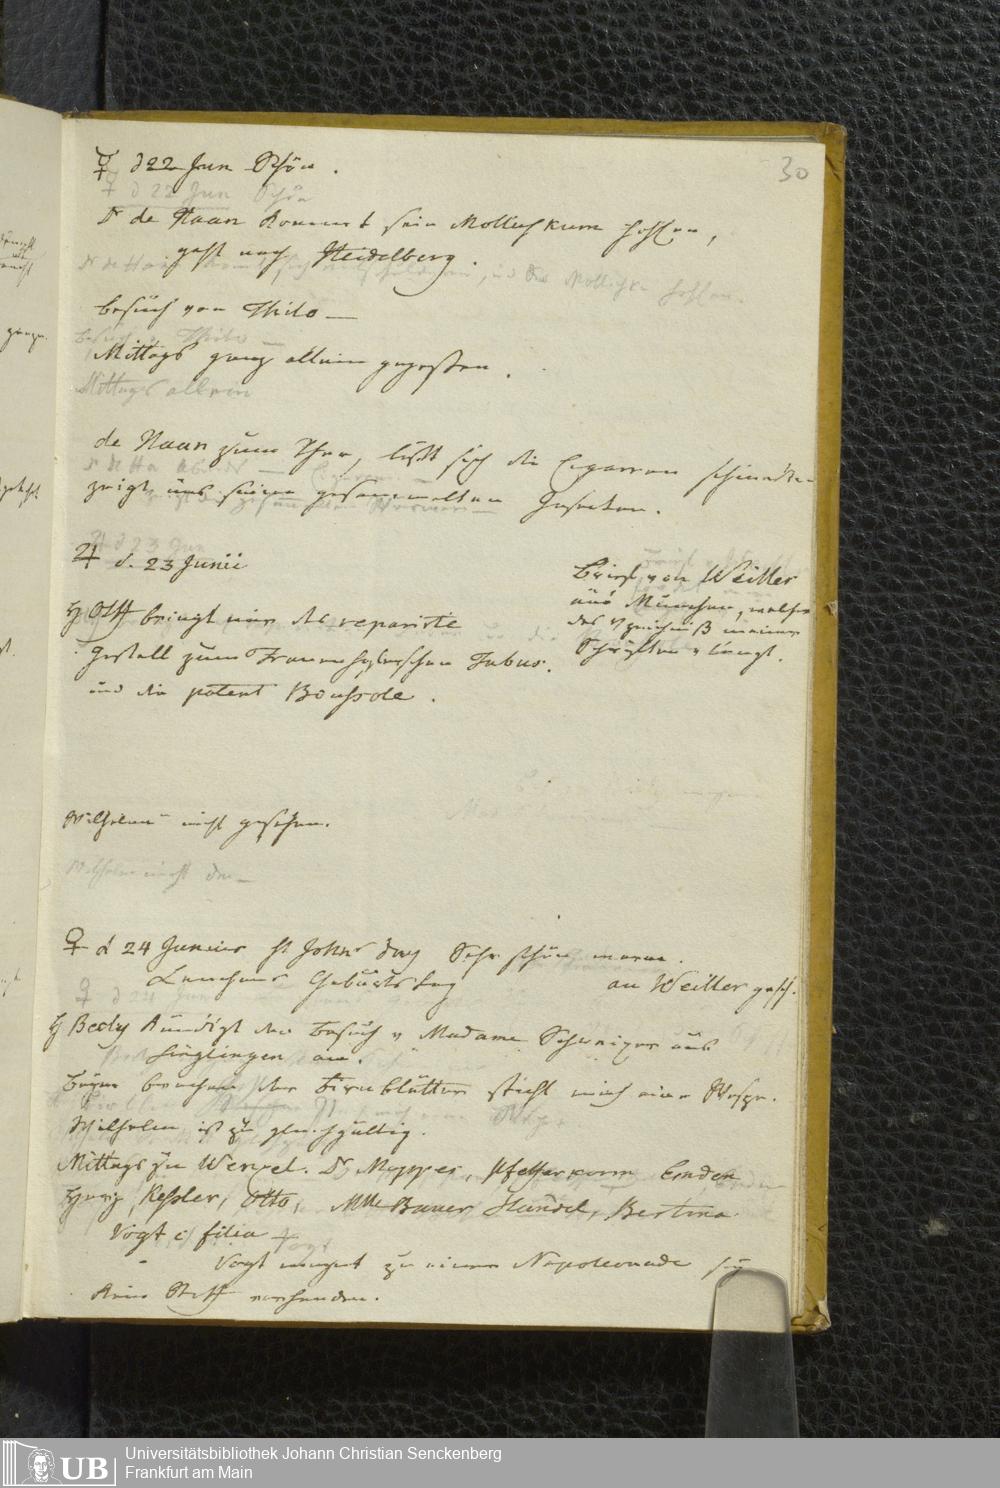 30
☿ d 22 Jun Schön.
Dr de Haan kommt sein Molluskum hohlen,
geht nach Heidelberg.
besuch von Thilo —
Mittags ganz allein gegessen.
Mittags allein
de Haan zum Thee, läßt sich die Cigarren schmecken
zeigt uns seine gesammelten Insecten.
♃ d. 23 Junii
H Ott bringt mir das reparirte
Gestell zum Frauenhoferschen Tubus.
und die patent Boussole.
Brief von Weitter
aus München, welcher
das Verzeichniß meiner
Schriften verlangt.
Wilhelm nicht gesehen.
♀ d 24 Junius St Johns Tag Sehr schön warm.
Lenchens Geburtstag
an Weitter gesch.
H Becly kündigt den Besuch v Madame Schweizer aus
an.
Beym brechen der Birnblätter sticht mich eine Wespe.
Wilhelm ist zu gleichgültig.
Mittags zu Wenzel. Dr Mappes, Pfefferkorn Emden
Kessler, Otto, Mlle Bauer Händel, Bertina
Vogt c filia
Vogt meynt zu einer Napoleonade sey
kein Stoff vorhanden.
Universitätsbibliothek Johann Christian Senckenberg
Frankfurt am Main
UB